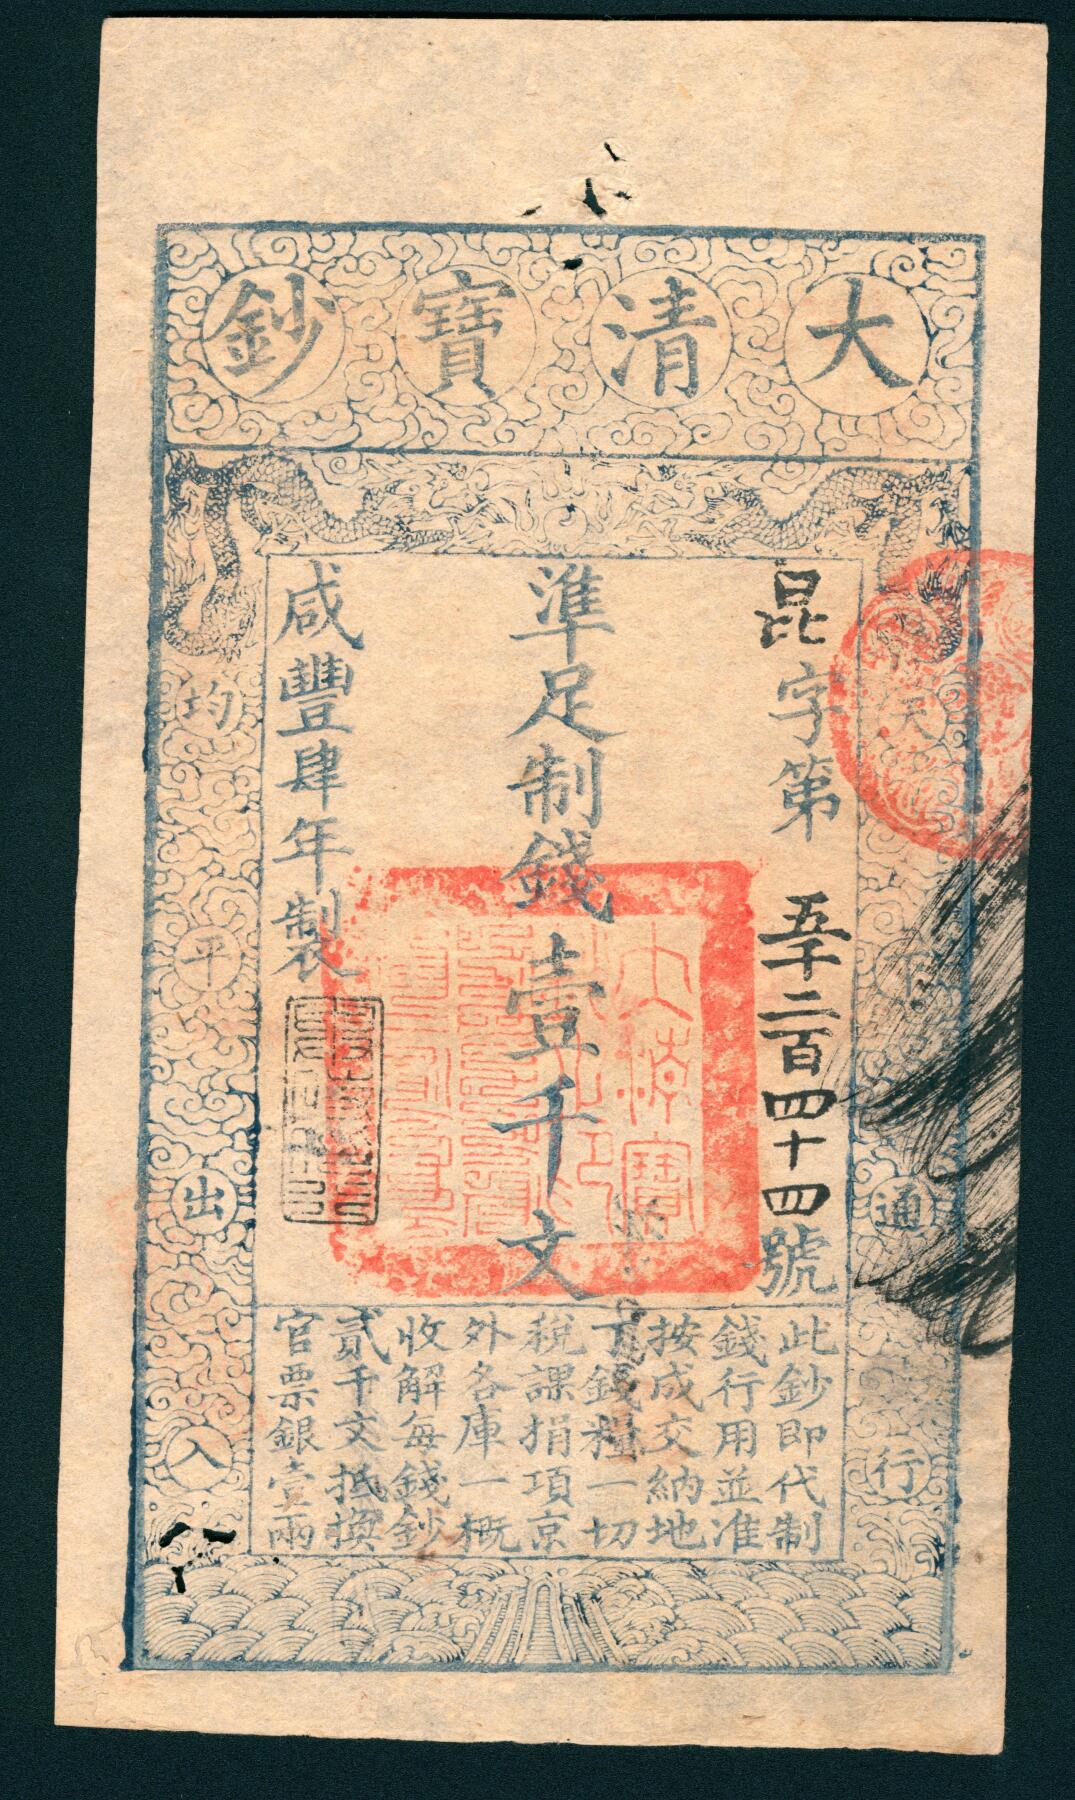 大清寶鈔
天下通行
均平出入
昆字第五千二百四十四號
準足制錢壹千文
咸豐肆年製
此鈔即代制
錢行用並准
按成交納地
丁錢糧一切
稅課捐項京
外各庫一概
收解每錢鈔
貳千文抵換
官票銀壹兩